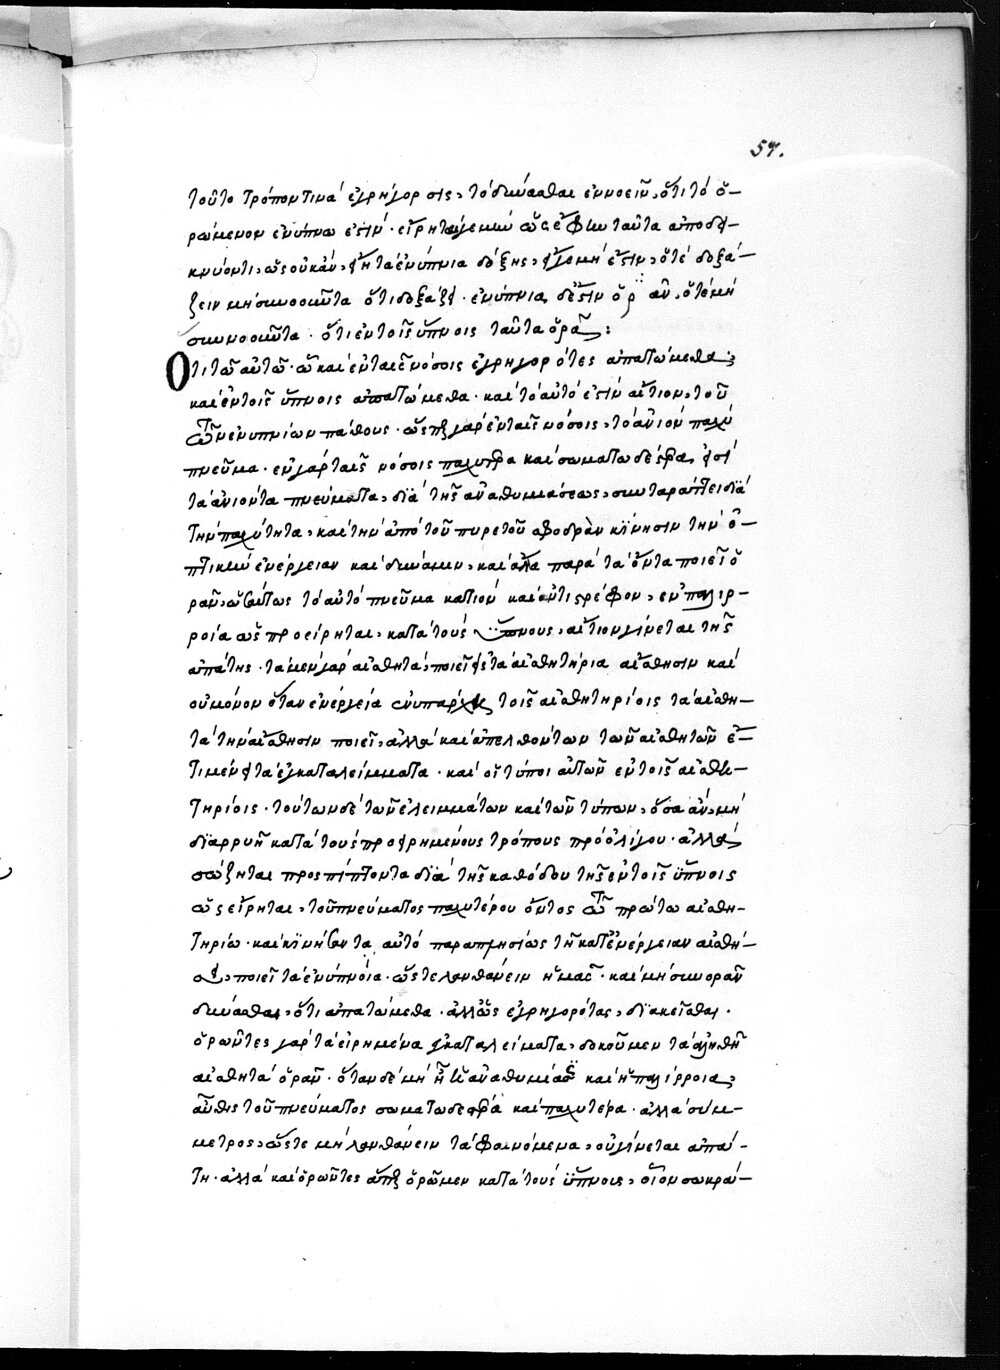 57.
τοῦτο τρόπον τινὰ ἐγρήγορσις, τὸ δύνασθαι ἐννοεῖν, ὅτι τὸ ὁ-
ρώμενον ἐνύπνιο ἐστίν· εἴρηται
κνύοντι, ὡς οὐκ ἂν, εἴη τὰ ἐνύπνια δόξης, εἰ γε μή ἐστιν, ὅτε δοξά-
ζειν μὴ συνορῶντα ὅτι δοξάζει· ἐνύπνια δέ ἐστιν ὁρᾶν, ὅτε μὴ
συνορῶντα· ὅτι ἐν τοῖς ὕπνοις ταῦτα ὁρᾷ:
Ὅτι τῶ αὐτῶ· ὧ καὶ ἐν ταῖς νόσοις ἐγρηγορότες ἀπατώμεθα,
καὶ ἐν τοῖς ὕπνοις ἀπατώμεθα· καὶ τὸ αὐτό ἐστιν αἴτιον, τοῦ
τῶν ἐνυπνίων πάθους· ὥσπερ γὰρ ἐν ταῖς νόσοις, τὸ ἀνιὸν παχὺ
πνεῦμα· ἐν γὰρ ταῖς νόσοις παχύτερα καὶ σωματωδέστερα, εἰσὶ
τὰ ἀνιόντα πνεύματα, διὰ τῆς ἀναθυμιάσεως, συνταράττει διὰ
τὴν παχύτητα, καὶ τὴν ἀπὸ τοῦ πυρετοῦ σφοδρὰν κίνησιν τὴν ὀ-
πτικὴν ἐνέργειαν καὶ δύναμιν, καὶ ἄλλα παρὰ τὰ ὄντα ποιεῖ ὁ
ρᾶν, οὕτως τὸ αὐτὸ πνεῦμα κατιὸν καὶ ἀντιστρέφον, ἐν παλιρ-
ροία ὡς προείρηται, κατὰ τοὺς ὕπνους, αἴτιον γίνεται τῆς
ἀπάτης· τὰ μὲν γὰρ αἰσθητὰ, ποιεῖ εἰς τὰ αἰσθητήρια αἴσθησιν καὶ
οὐ μόνον ὅταν ἐνέργεία ἐνυπάρχη τοῖς αἰσθητηρίοις τὰ αἰσθη-
τὰ τὴν αἴσθησιν ποιεῖ, ἀλλὰ καὶ ἀπελθόντων τῶν αἰσθητῶν ἔ-
τι μένει τὰ ἐγκαταλείμματα· καὶ οἱ τύποι αὐτῶν ἐν τοῖς αἰσθη-
τηρίοις· τούτων δὲ τῶν ἐλειμμάτων καὶ τῶν τύπων, ὅσα ἂν, μὴ
διαρρυῆ κατὰ τοὺς προειρημένους τρόπους πρὸ ὀλίγου· ἀλλὰ
σώζηται προσπίπτοντα διὰ τῆς καθόδου τῆς ἐν τοῖς ὕπνοις
ὡς εἴρηται, τοῦ πνεύματος παχυτέρου ὄντος τῶ πρώτω αἰσθη-
τηρίω· καὶ κινήσοντα αὐτὸ παραπλησίως τῆ κατ' ἐνέργειαν αἰσθή-
σει, ποιεῖ τὰ ἐνύπνοια· ὥστε λανθάνειν ἡμᾶς· καὶ μὴ συνορᾶν
δύνασθαι, ὅτι ἀπατώμεθα· ἀλλ' ὡς ἐγρηγορότας, διακεῖσθαι.
ὁρῶντες γὰρ τὰ εἰρημένα ἐγκαταλείματα, δοκοῦμεν τὰ ἀληθῆ
αἰσθητὰ ὁρᾶν· ὅταν δὲ μὴ ἦ ἡ ἀναθυμίασις καὶ ἡ παλίρροια,
αὖθις τοῦ πνεύματος σωματωδεστέρα καὶ παχυτέρα· ἀλλὰ σύμ-
μετρος, ὥστε μὴ λανθάνειν τὰ φαινόμενα, οὐ γίνεται ἀπά-
τη· ἀλλὰ καὶ ὁρῶντες ἅπερ ὁρῶμεν κατὰ τοὺς ὕπνους, οἷον σωκρά-